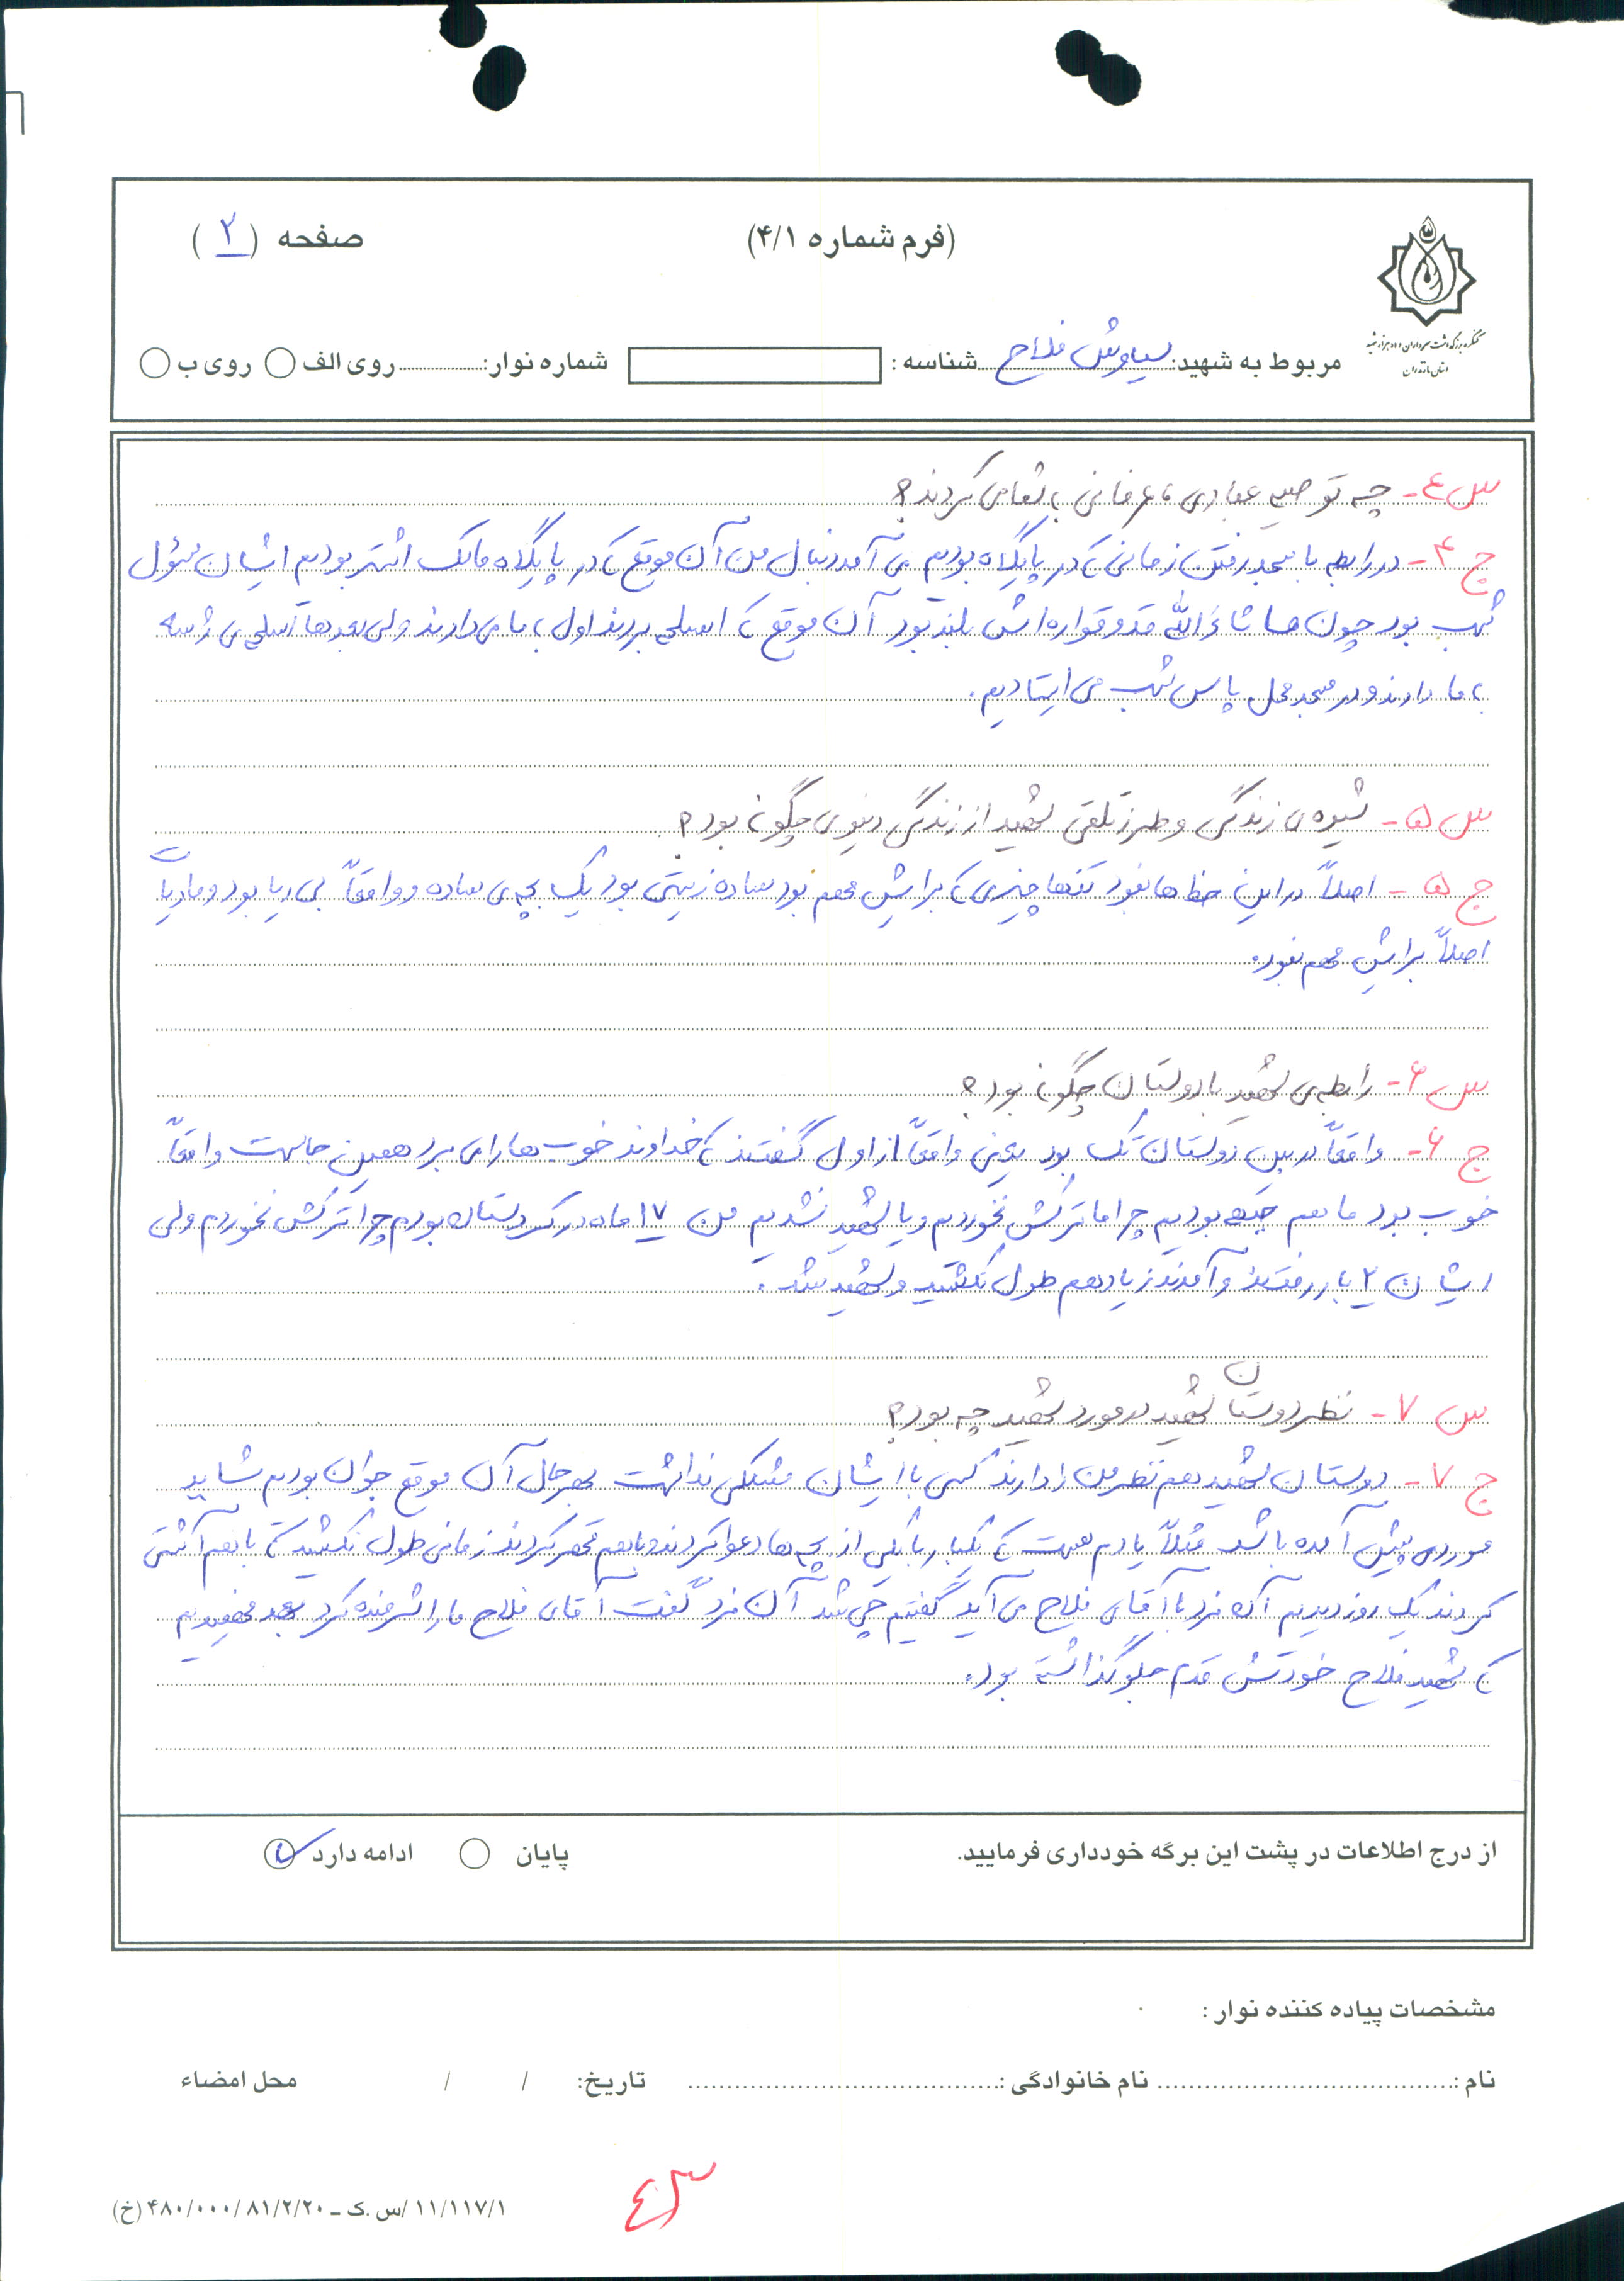 (فرم شماره ۴/۱)
صفحه (۲)
کنگره بزرگداشت سرداران و ده هزار شهید
استان مازندران
مربوط به شهید: سیاوش فلاح شناسه : شماره نوار: روی الف روی ب
س ٤- چه توصیه عبادی، عرفانی به شما می کردند؟
ج ۴- در رابطه با مسجد رفتن زمانی که در پایگاه بودیم می آمد دنبال من آن موقع که در پایگاه مالک اشتر بودیم ایشان مسئول
شب بود چون ماشاءَالله قد و قواره اش بلند بود آن موقع که اسلحه بردند اول به ما می دادند ولی بعدها اسلحه ی ژ سه
به ما دادند و در مسجد محل پاس شب می ایستادیم.
س ۵- شیوه ی زندگی و طرز تلقی شهید از زندگی دنیوی چگونه بود؟
ج ۵- اصلاً در این خط ها نبود تنها چیزی که برایش مهم بود ساده زیستی بود یک بچه ی ساده و واقعاً بی ریا بود و مادیات
اصلاً برایش مهم نبود.
س ۶- رابطه ی شهید با دوستان چگونه بود؟
ج ۶- واقعاً در بین دوستان تک بود یعنی واقعاً از اول گفتند که خداوند خوب ها را می برد همین جاست واقعاً
خوب بود ما هم جبهه بودیم چرا ما ترکش نخوردیم و یا شهید نشدیم من ۱۷ ماه در کردستان بودم چرا ترکش نخوردم ولی
ایشان ۲ بار رفتند و آمدند زیاد هم طول نکشید و شهید شد.
س ۷- نظر دوستان شهید در مورد شهید چه بود؟
ج ۷- دوستان شهید هم نظر من را دارند کسی با ایشان مشکلی نداشت بهرحال آن موقع جوان بودیم شاید
موردی پیش آمده باشد مثلاً یادم هست که یکبار با یکی از بچه ها دعوا کردند و با هم قهر کردند زمانی طول نکشید که با هم آشتی
کردند یک روز دیدیم آن فرد با آقای فلاح می آید گفتیم چی شد آن فرد گفت آقای فلاح ما را شرمنده کرد بعد فهمیدیم
که شهید فلاح خودش قدم جلو گذاشته بود.
از درج اطلاعات در پشت این برگه خودداری فرمایید. پایان ادامه دارد
مشخصات پیاده کننده نوار :
نام : نام خانوادگی : تاریخ: / / محل امضاء
۴۳
۱۱/۱۱۷/۱ /س.ک ـ ۸۱/۲/۲۰ /۴۸۰/۰۰۰ (خ)